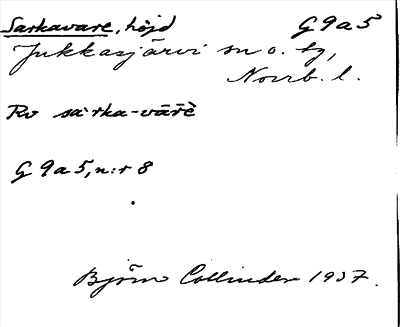 Sarkavare, höjd G9a5
Jukkasjärvi sn o. tg,
Norrb. l.
Rv sàrka-vāřè
G 9a5, n:r 8
Björn Collinder 1937.